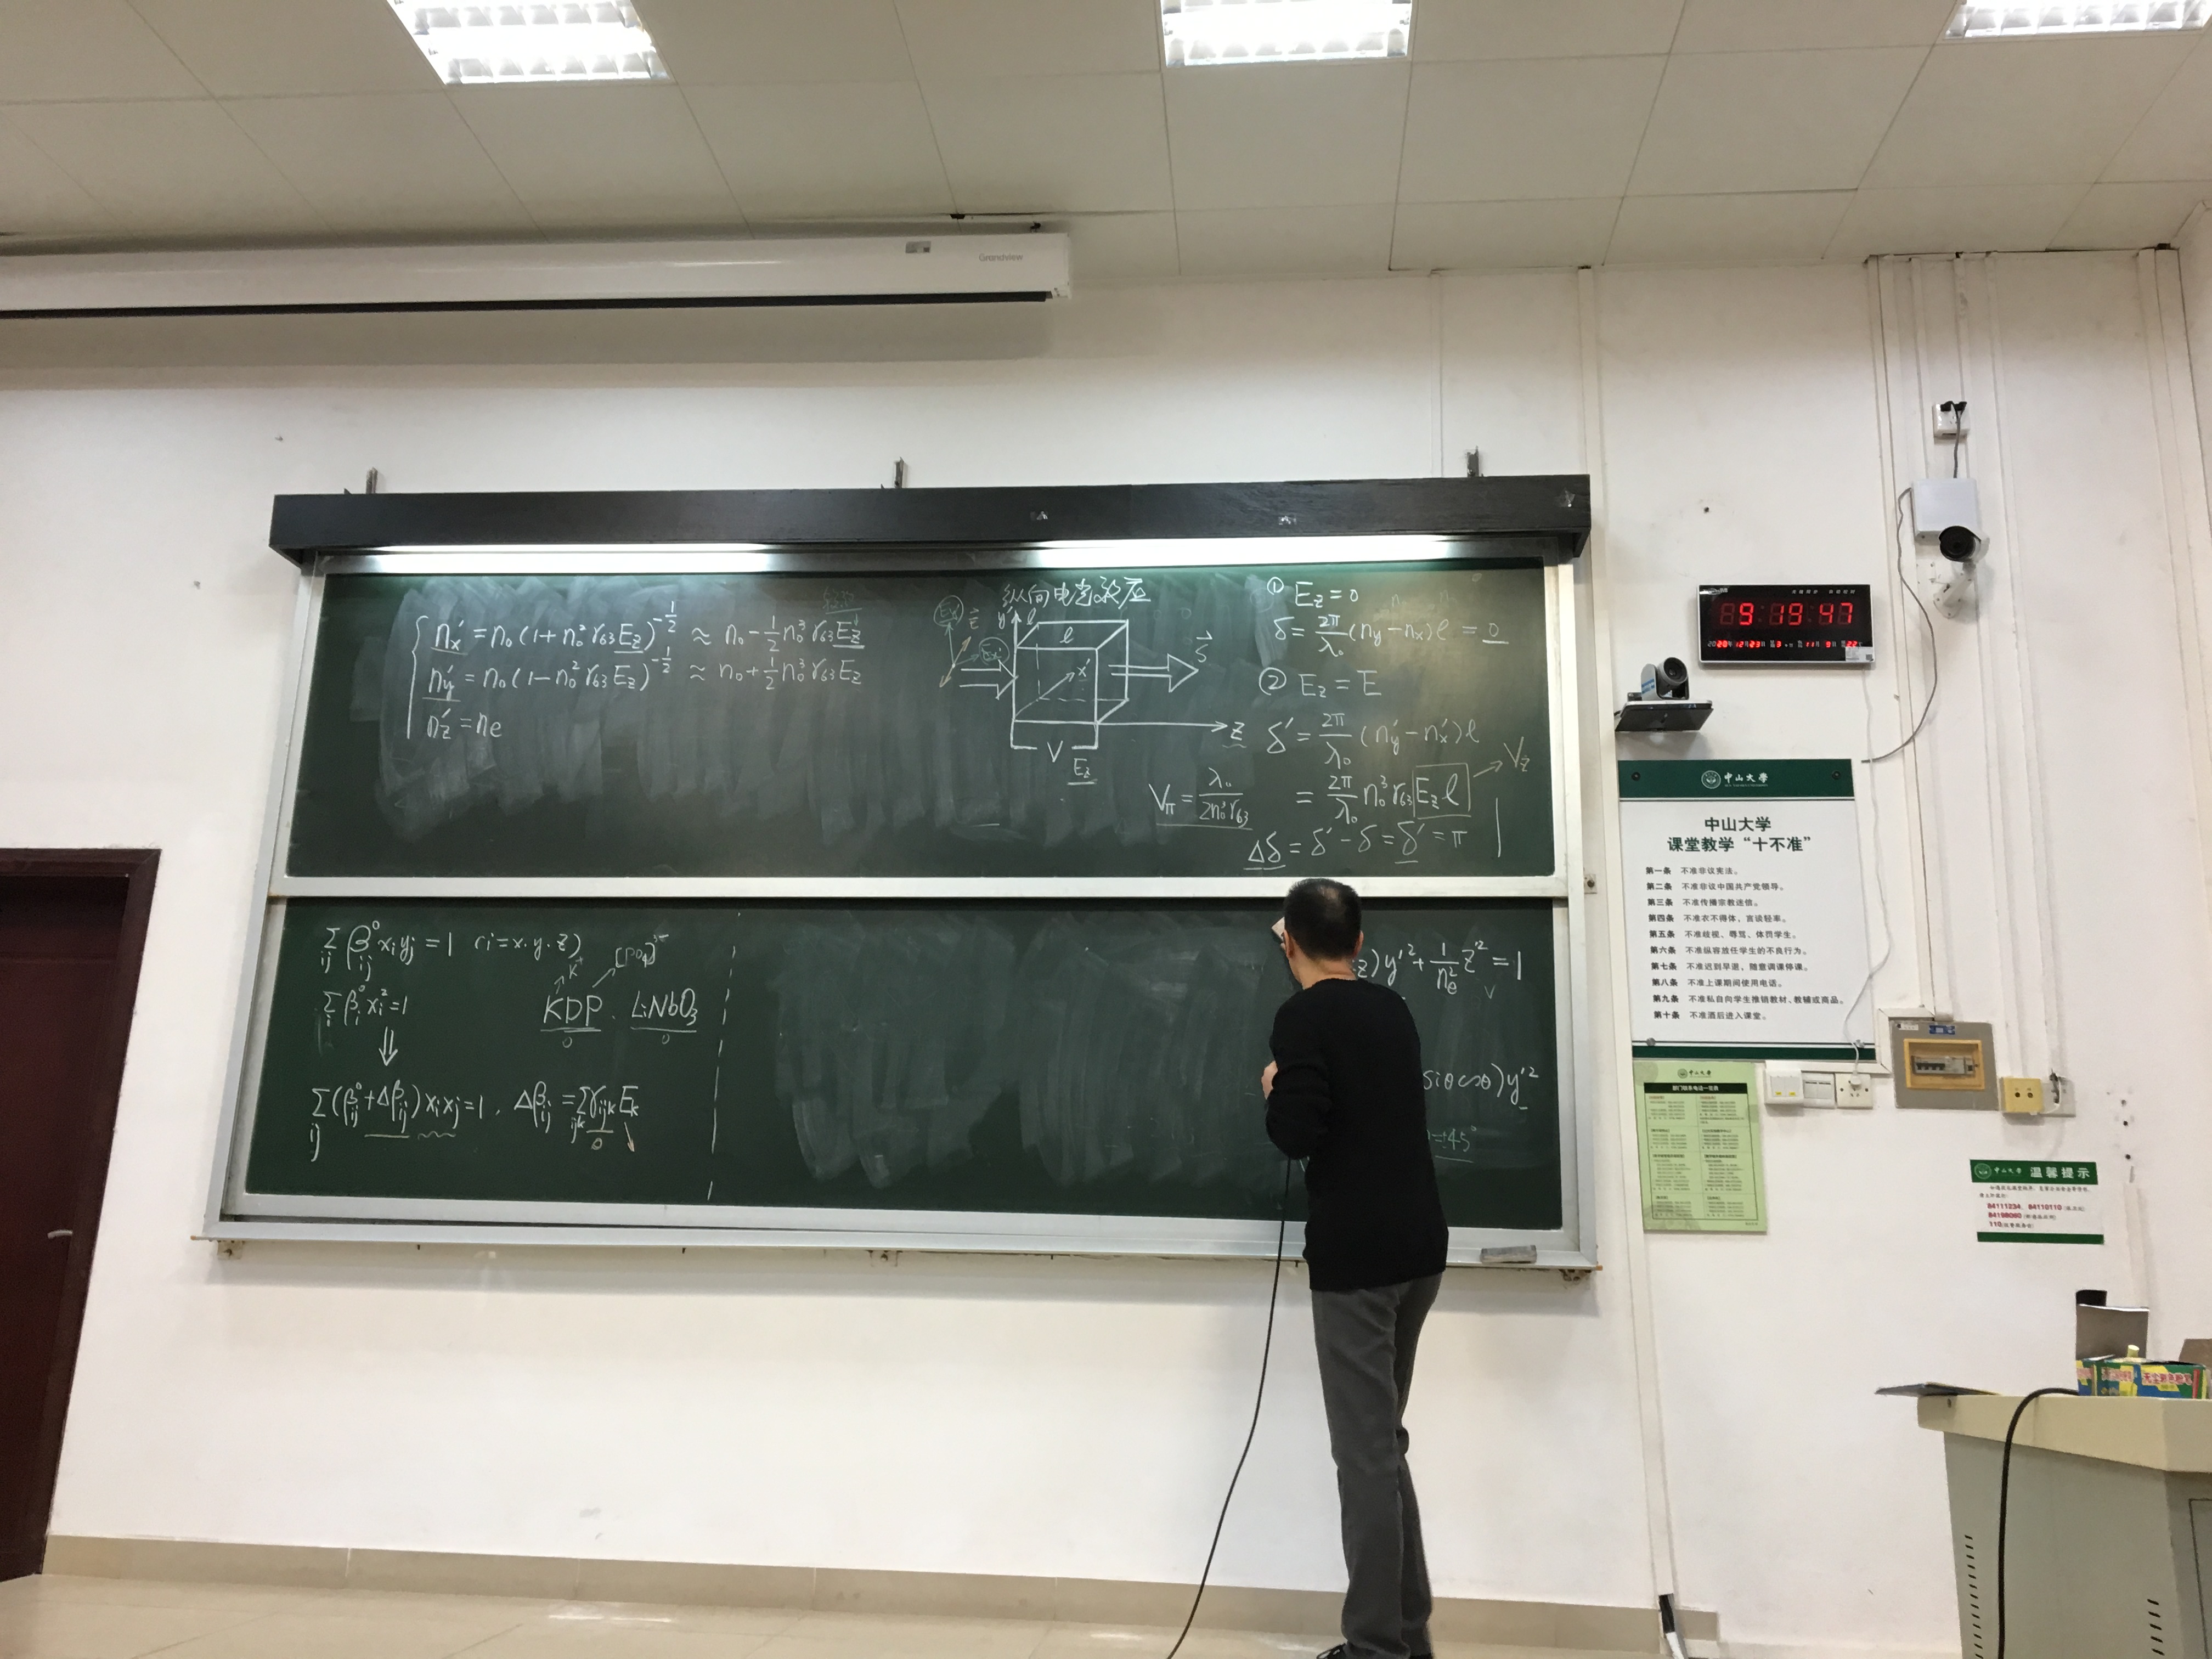 Grandview
n'x = n₀(1+n₀²γ₆₃Ez)^(-1/2) ≈ n₀ - 1/2 n₀³γ₆₃Ez
n'y = n₀(1-n₀²γ₆₃Ez)^(-1/2) ≈ n₀ + 1/2 n₀³γ₆₃Ez
n'z = ne
纵向电光效应
y' l
l
x'
S
z
V
Ez
① Ez = 0
δ = 2π/λ₀ (ny - nx) l = 0
② Ez = E
δ' = 2π/λ₀ (n'y - n'x) l
= 2π/λ₀ n₀³γ₆₃ Ez l → Vz
Vπ = λ₀/2n₀³γ₆₃
Δδ = δ' - δ = δ' = π
Σij βij⁰ xi yj = 1 (i = x. y. z)
Σi βi⁰ xi² = 1
⇓
K⁺ [PO₄]
KDP. LiNbO₃
Σij (βij⁰ + Δβij) xi xj = 1, Δβij = Σijk γijk Ek
z) y'² + 1/ne² z'² = 1
siθcosθ) y'²
=+45°
9 19 47
中山大学
中山大学
课堂教学“十不准”
第一条 不准非议宪法。
第二条 不准非议中国共产党领导。
第三条 不准传播宗教迷信。
第四条 不准衣不得体，言谈轻率。
第五条 不准歧视、辱骂、体罚学生。
第六条 不准纵容放任学生的不良行为。
第七条 不准迟到早退，随意调课停课。
第八条 不准上课期间使用电话。
第九条 不准私自向学生推销教材、教辅或商品。
第十条 不准酒后进入课堂。
中山大学
部门联系电话一览表
中山大学 温馨提示
84111234、84110110
84198060
110